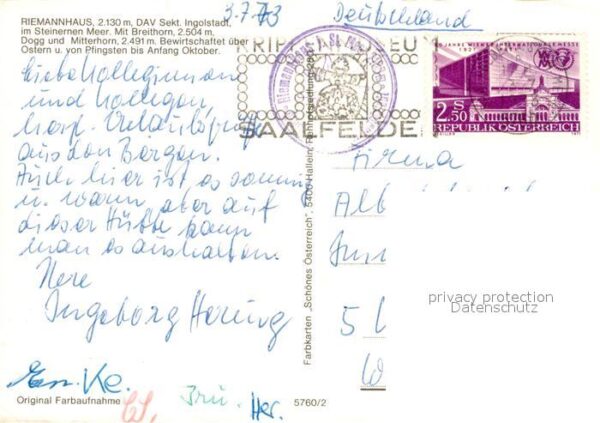 RIEMANNHAUS, 2.130 m, DAV Sekt. Ingolstadt,
im Steinernen Meer. Mit Breithorn, 2.504 m,
Dogg und Mitterhorn, 2.491 m. Bewirtschaftet über
Ostern u. von Pfingsten bis Anfang Oktober.
3.7.73
Deutschland
Liebe Kolleginnen
und Kollegen,
herzl. Urlaubsgrüße
aus den Bergen.
Auch hier ist es sonnig
u. warm, aber auf
dieser Hütte kann
man es aushalten.
Ingeborg
KRIPPENMUSEUM
SAALFELDEN
50 JAHRE WIENER INTERNATIONALE MESSE
S
2.50
REPUBLIK ÖSTERREICH
Firma
Alb
5
W
privacy protection
Datenschutz
Farbkarten „Schönes Österreich", 5400 Hallein,
Original Farbaufnahme
Brü.
Her.
5760/2